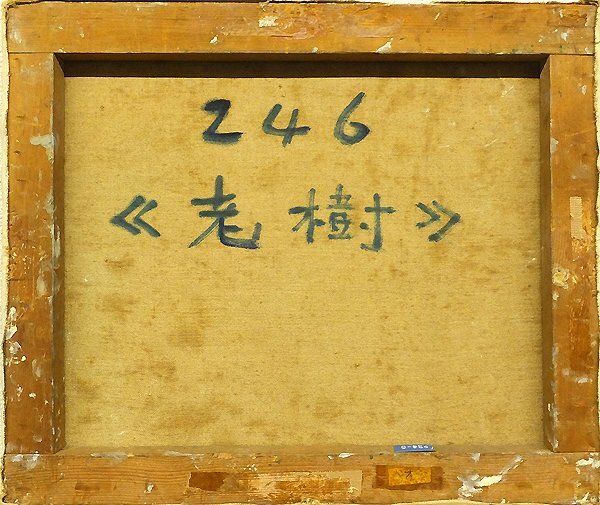 246
《老樹》